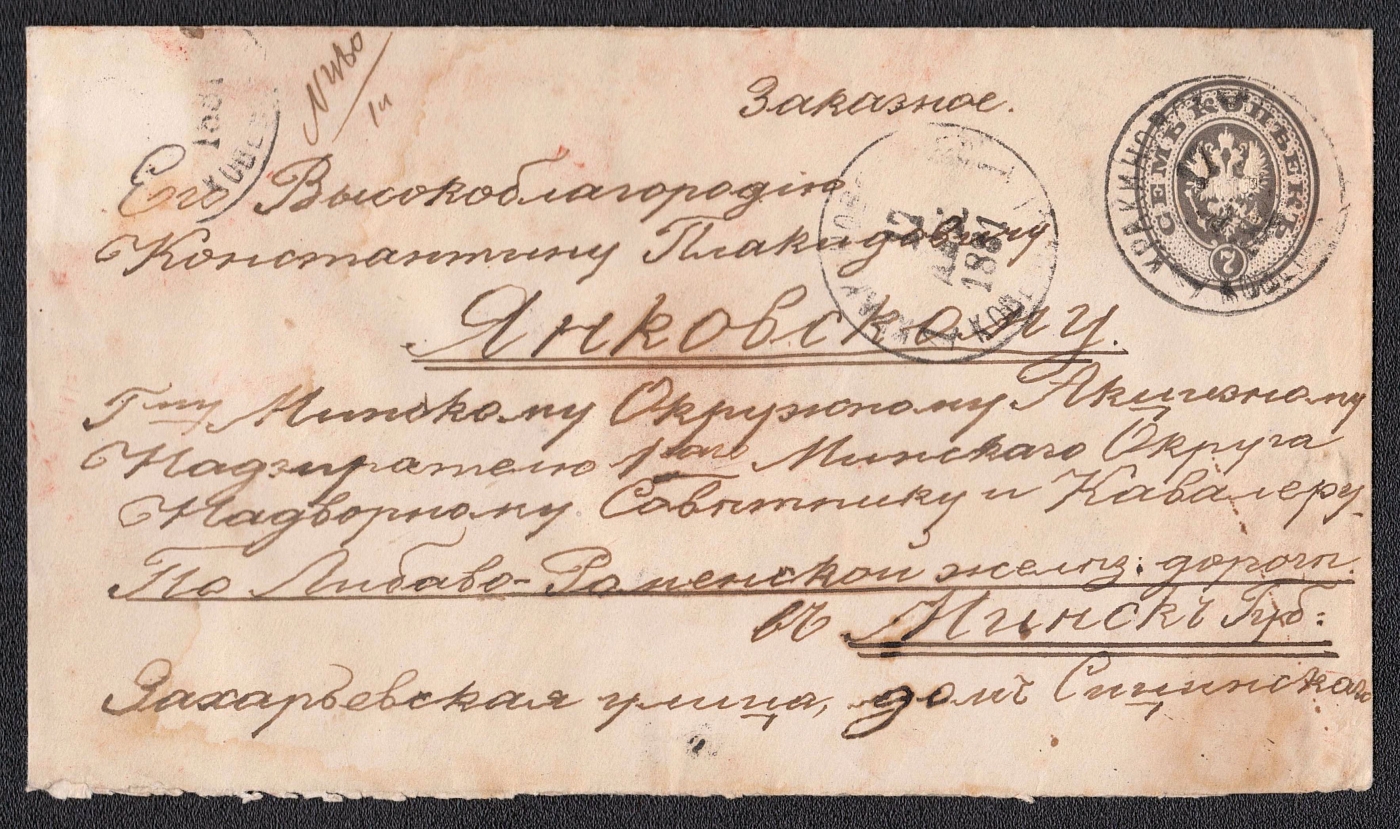 Заказное.
Его Высокоблагородію
Константину Плакидовичу
Янковскому.
Г-ну Минскому Окружному Акцизному
Надзирателю 1-аго Минскаго Округа
Надворному Совѣтнику и Кавалеру
По Либаво-Роменской желѣз: дороги.
въ Минскъ Губ:
Захарьевская улица, домъ Сицинскаго
СЕМЬ КОПѢЕКЪ
7
12
1881
КОВЕ